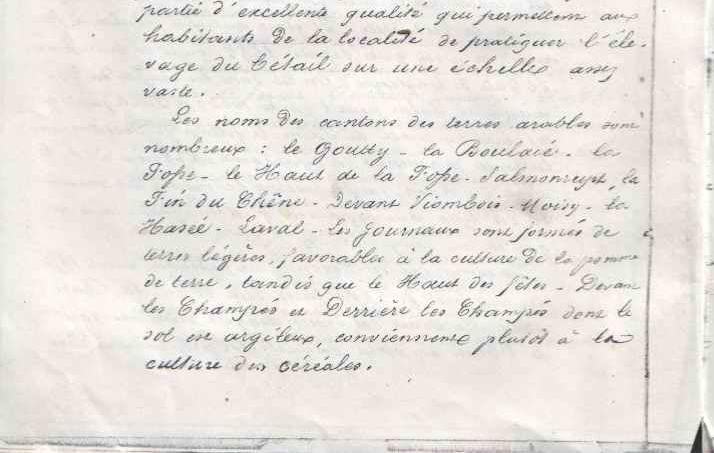 partie d'excellente qualité qui permettent aux
habitants de la localité de pratiquer l'éle-
vage du bétail sur une échelle assez
vaste.
Les noms des cantons des terres arables sont
nombreux : le Goutty - la Boulaie - la
Fosse - le Haut de la Fosse - la
Fin du Chêne - Devant Viombois - Moisy - la
Hasée - Laval - les Journaux sont formés de
terres légères, favorables à la culture de la pomme
de terre, tandis que le Haut des Fêtes - Devant
les Champés et Derrière les Champés dont le
sol est argileux, conviennent plutôt à la
culture des céréales.